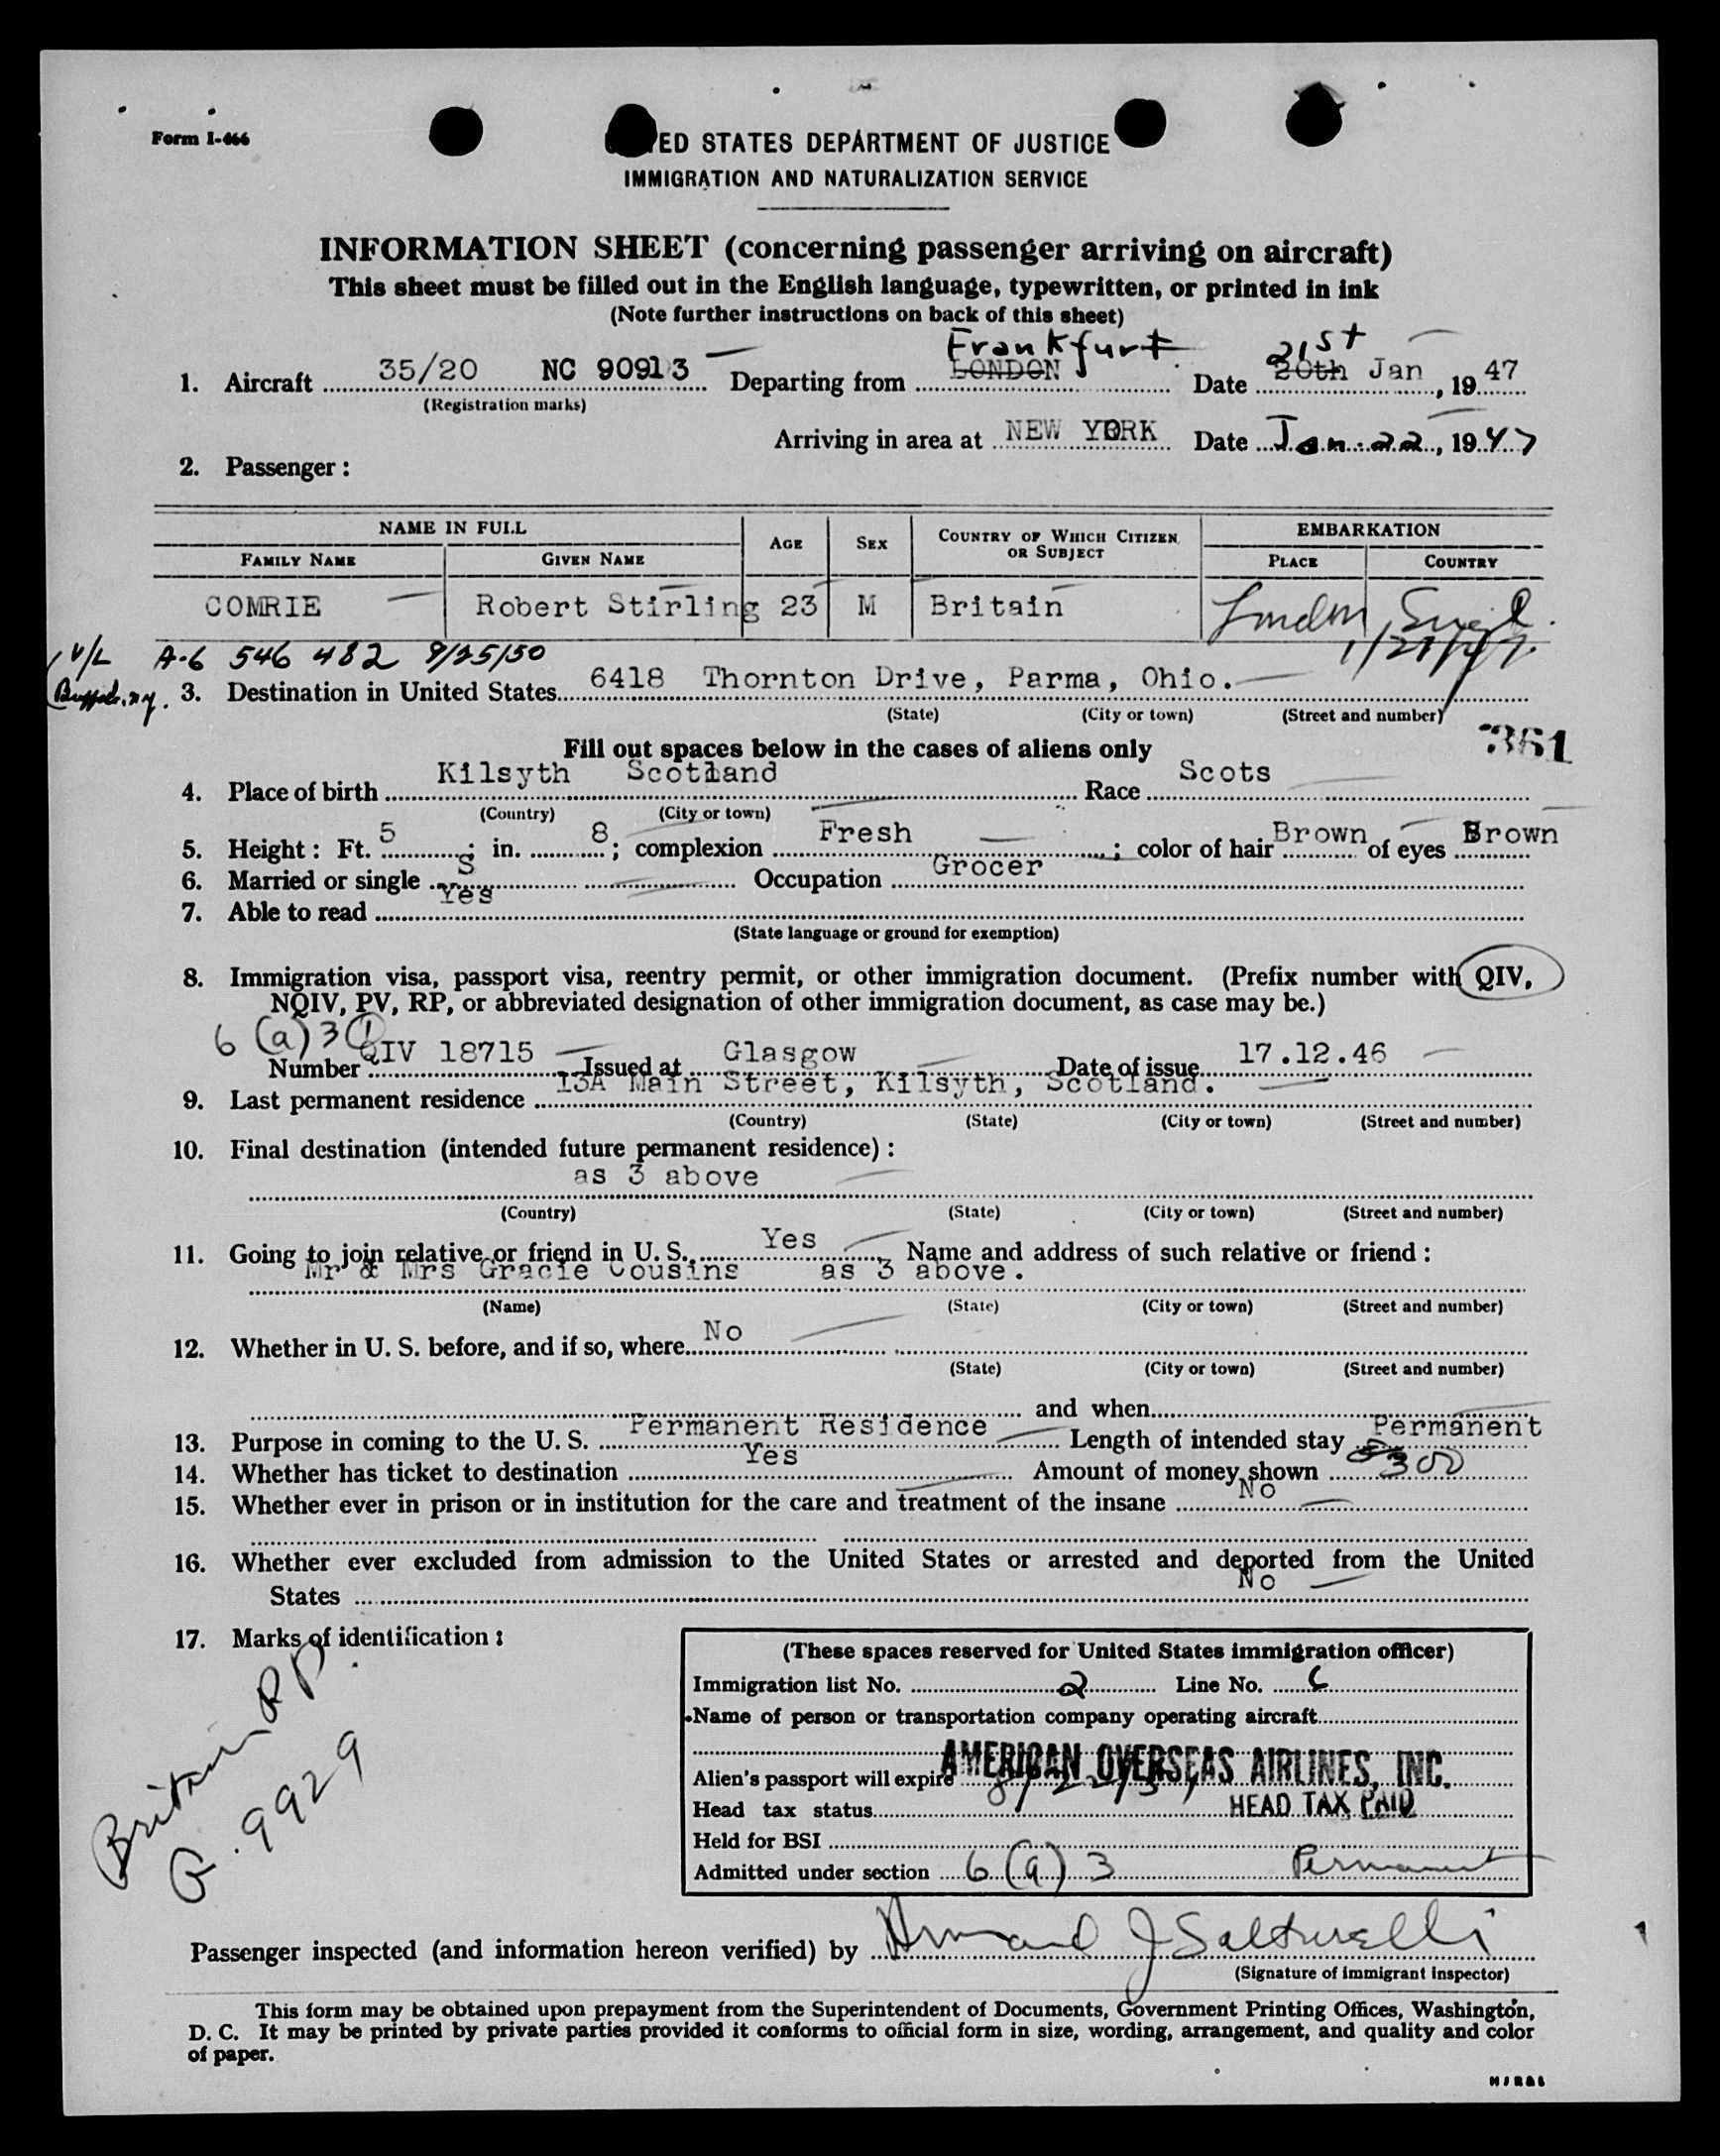 Form I-466
ED STATES DEPARTMENT OF JUSTICE
IMMIGRATION AND NATURALIZATION SERVICE
INFORMATION SHEET (concerning passenger arriving on aircraft)
This sheet must be filled out in the English language, typewritten, or printed in ink
(Note further instructions on back of this sheet)
Frankfurt 21st
1. Aircraft 35/20 NC 90913 Departing from LONDON Date 20th Jan, 1947
(Registration marks)
Arriving in area at NEW YORK Date Jan. 22, 1947
2. Passenger:
NAME IN FULL AGE SEX COUNTRY OF WHICH CITIZEN OR SUBJECT EMBARKATION
FAMILY NAME GIVEN NAME PLACE COUNTRY
COMRIE Robert Stirling 23 M Britain London, Engl.
V/L A-6 546 482 9/25/50 1/21/47
(Buffalo, N.Y. 3. Destination in United States 6418 Thornton Drive, Parma, Ohio.
(State) (City or town) (Street and number)
361
Fill out spaces below in the cases of aliens only
4. Place of birth Kilsyth Scotland Race Scots
(Country) (City or town)
5. Height: Ft. 5; in. 8; complexion Fresh; color of hair Brown of eyes Brown
6. Married or single S Occupation Grocer
7. Able to read Yes
(State language or ground for exemption)
8. Immigration visa, passport visa, reentry permit, or other immigration document. (Prefix number with QIV,
NQIV, PV, RP, or abbreviated designation of other immigration document, as case may be.)
6 (a) 3 (1)
Number QIV 18715 Issued at Glasgow Date of issue 17.12.46
9. Last permanent residence 13A Main Street, Kilsyth, Scotland.
(Country) (State) (City or town) (Street and number)
10. Final destination (intended future permanent residence):
as 3 above
(Country) (State) (City or town) (Street and number)
11. Going to join relative or friend in U. S. Yes Name and address of such relative or friend:
Mr & Mrs Gracie Cousins as 3 above.
(Name) (State) (City or town) (Street and number)
12. Whether in U. S. before, and if so, where No
(State) (City or town) (Street and number)
and when
13. Purpose in coming to the U. S. Permanent Residence Length of intended stay Permanent
14. Whether has ticket to destination Yes Amount of money shown 300
15. Whether ever in prison or in institution for the care and treatment of the insane No
16. Whether ever excluded from admission to the United States or arrested and deported from the United
States No
17. Marks of identification:
British PP.
G. 9929
(These spaces reserved for United States immigration officer)
Immigration list No. 2 Line No. 6
Name of person or transportation company operating aircraft
AMERICAN OVERSEAS AIRLINES, INC.
Alien's passport will expire
Head tax status HEAD TAX PAID
Held for BSI
Admitted under section 6 (a) 3 Permanent
Passenger inspected (and information hereon verified) by Armand J
(Signature of immigrant inspector)
This form may be obtained upon prepayment from the Superintendent of Documents, Government Printing Offices, Washington,
D. C. It may be printed by private parties provided it conforms to official form in size, wording, arrangement, and quality and color
of paper.